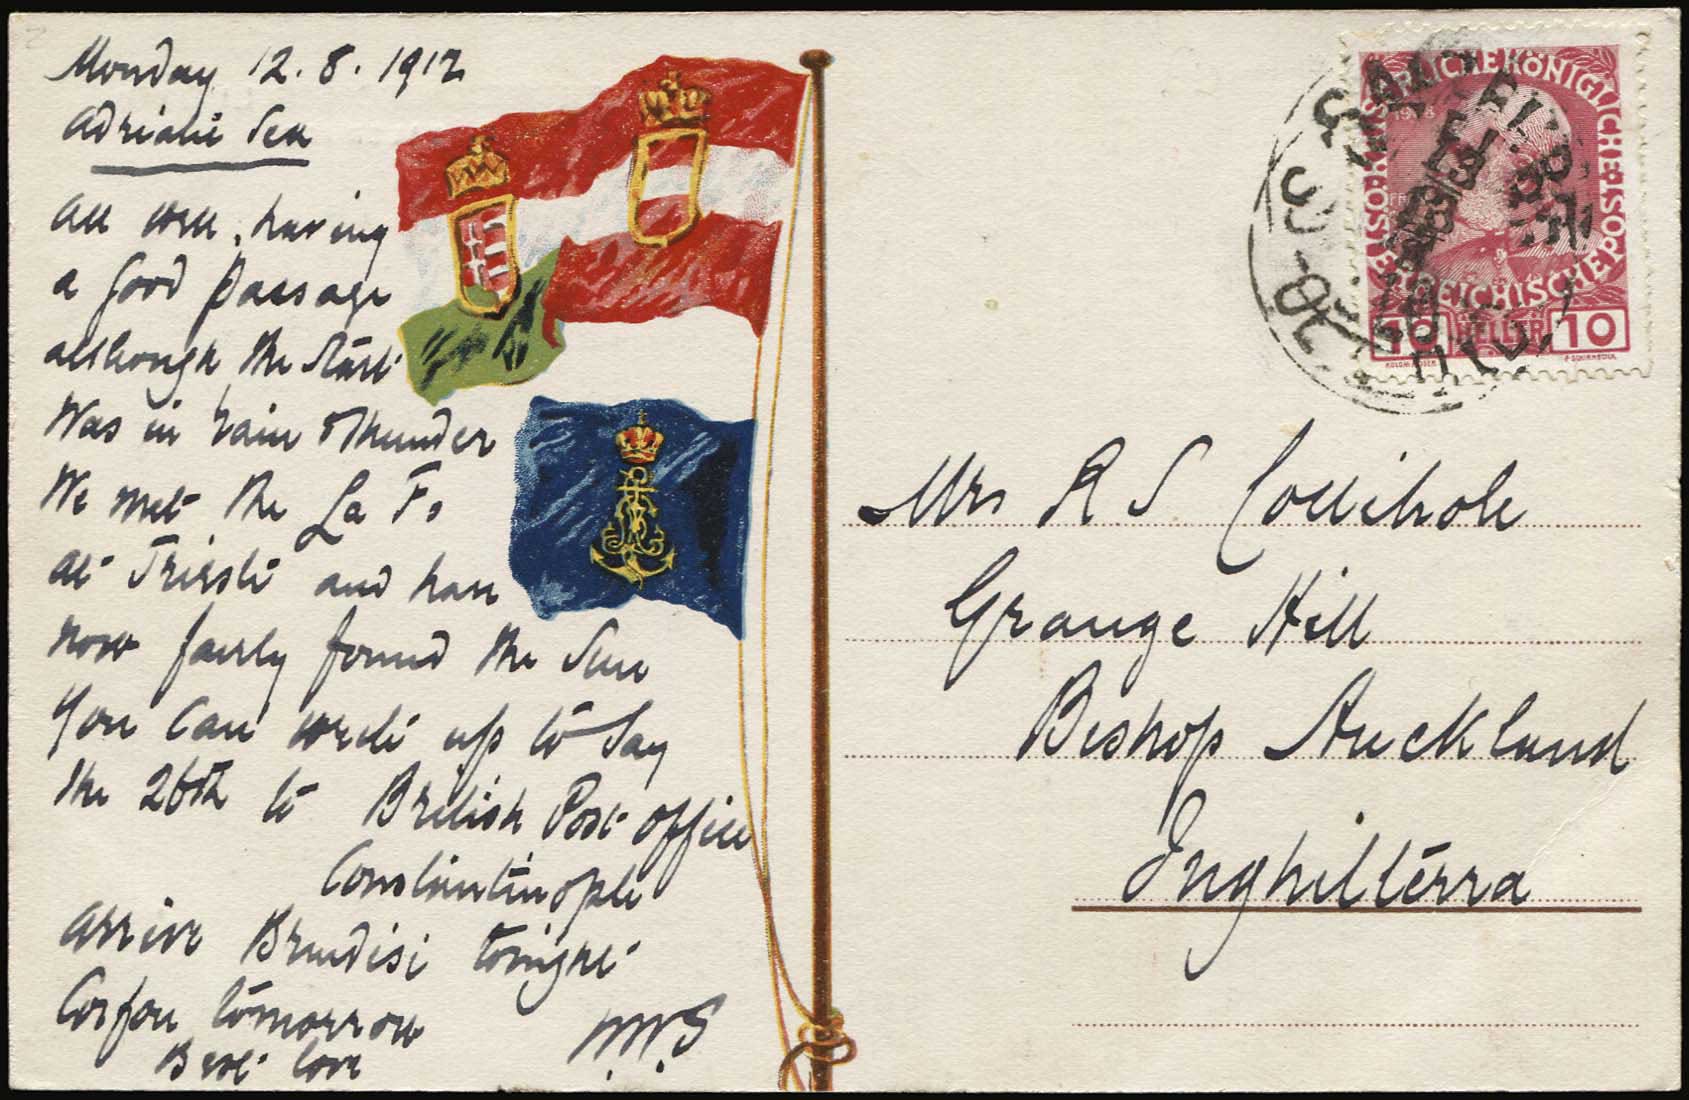 Monday 12.8.1912
Adriatic Sea
All well, having
a good passage
although the start
was in rain & thunder
We met the La Fs
at Trieste and have
now fairly found the Sun
You can write up to say
the 26th to British Post office
Constantinople
arrive Brindisi tonight
Corfou tomorrow
Best love
W.W.S
Mrs R S
Grange Hill
Bishop Auckland
Inghilterra
KAISERLICHE KÖNIGLICHE POST
ÖSTERREICHISCHE
1908
10 HELLER 10